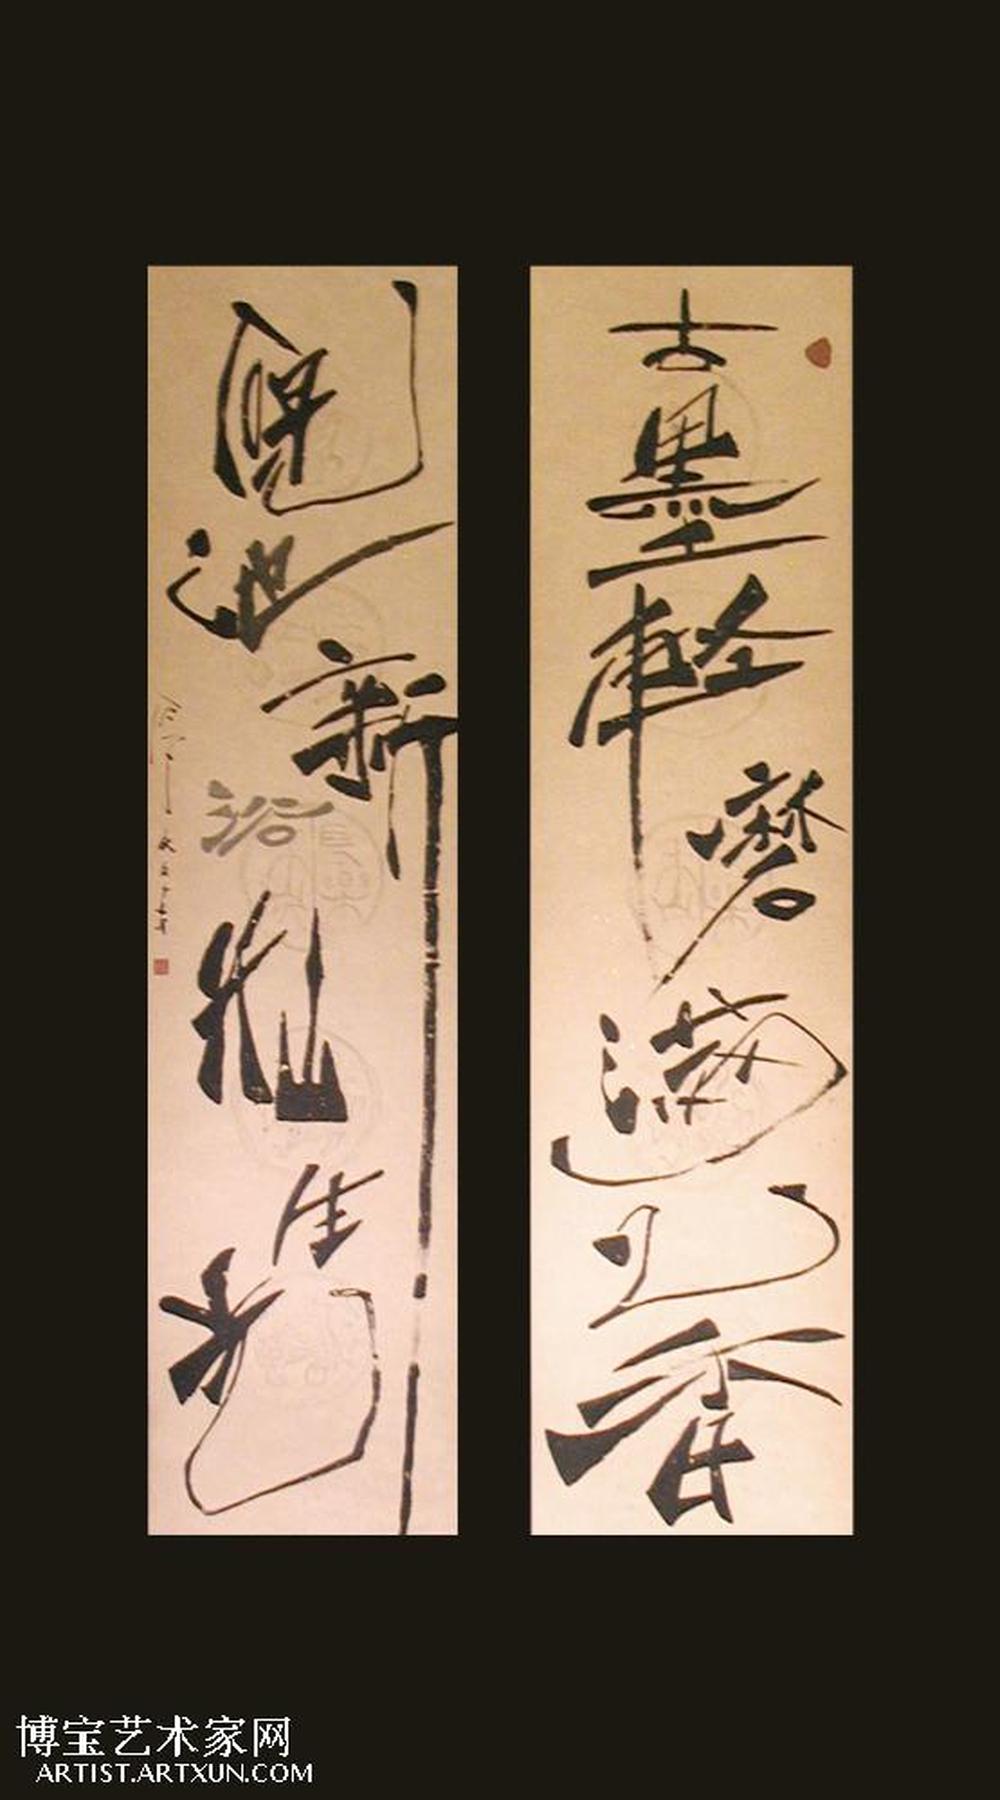 古墨輕磨滿几香
硯池新浴燦生光
博宝艺术家网
ARTIST.ARTXUN.COM